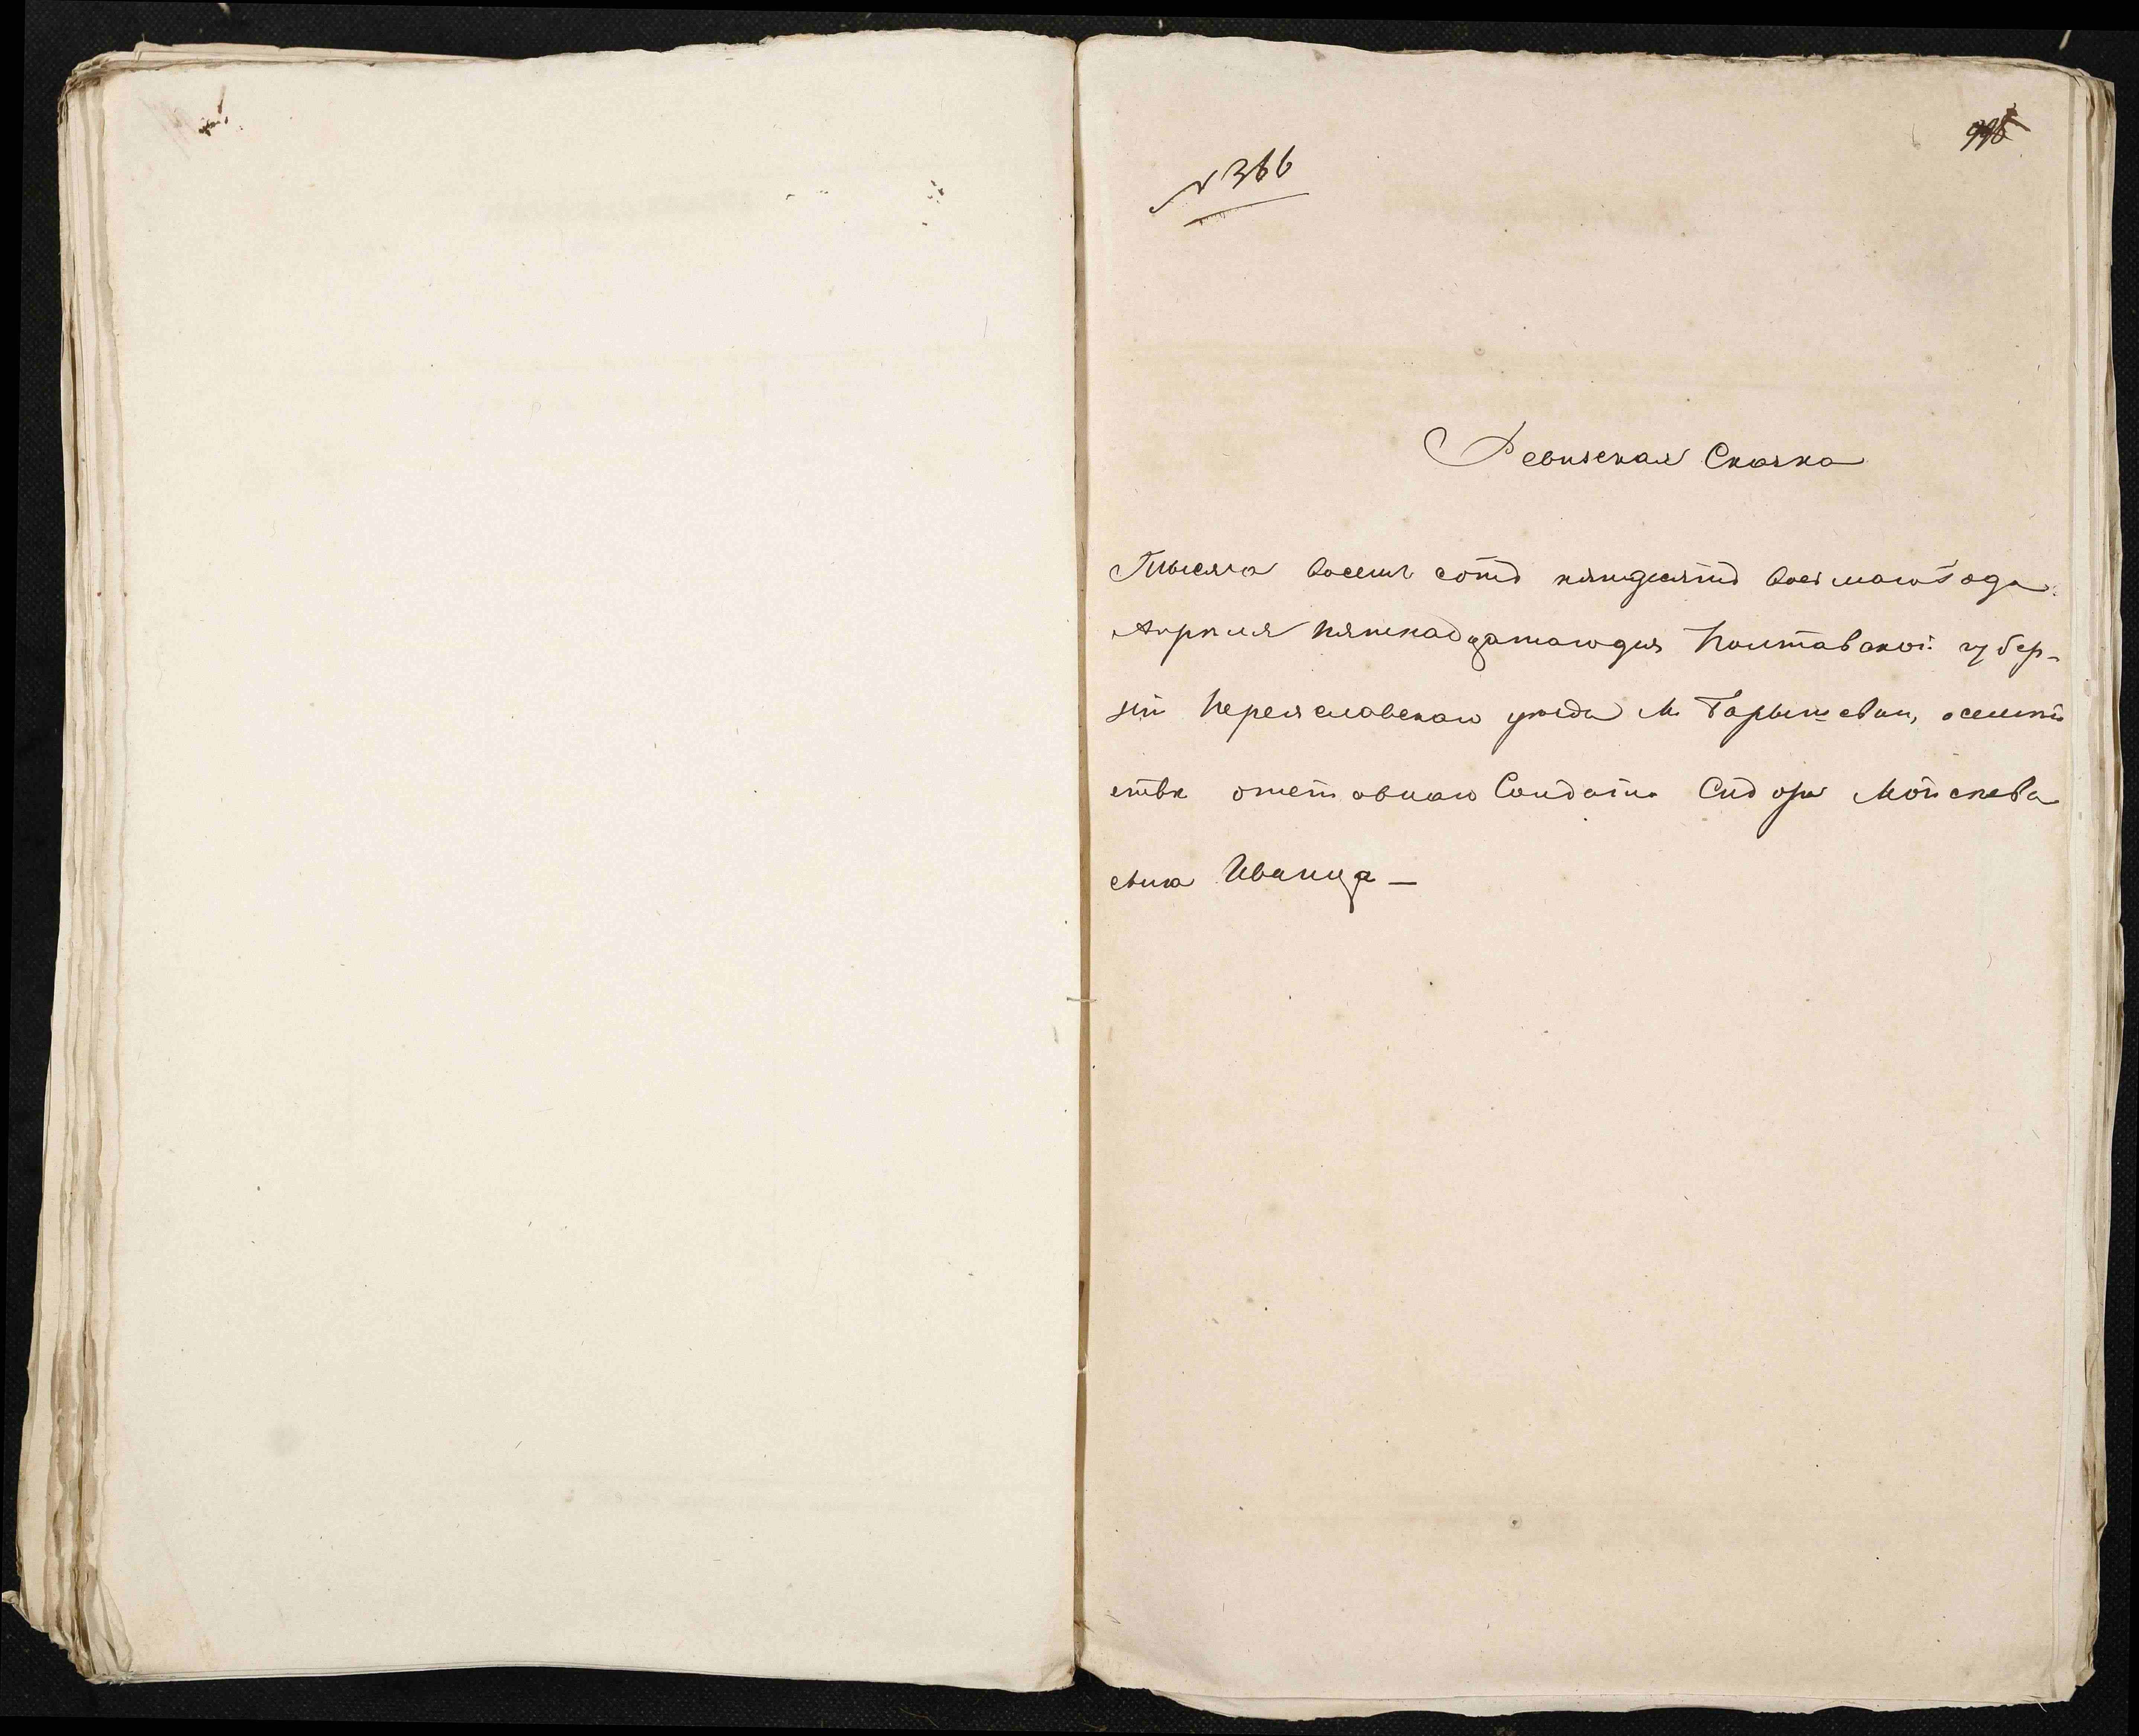 № 366
Ревизская Сказка
Тысяча восемь сотъ пятдесятъ восмаго года
Апреля пятнадцатаго дня Полтавской губер-
нiи Переяславскаго уезда М. Барышевки, о семей
стве отставнаго Солдата Сидора Мойсеева
сына Иваница —